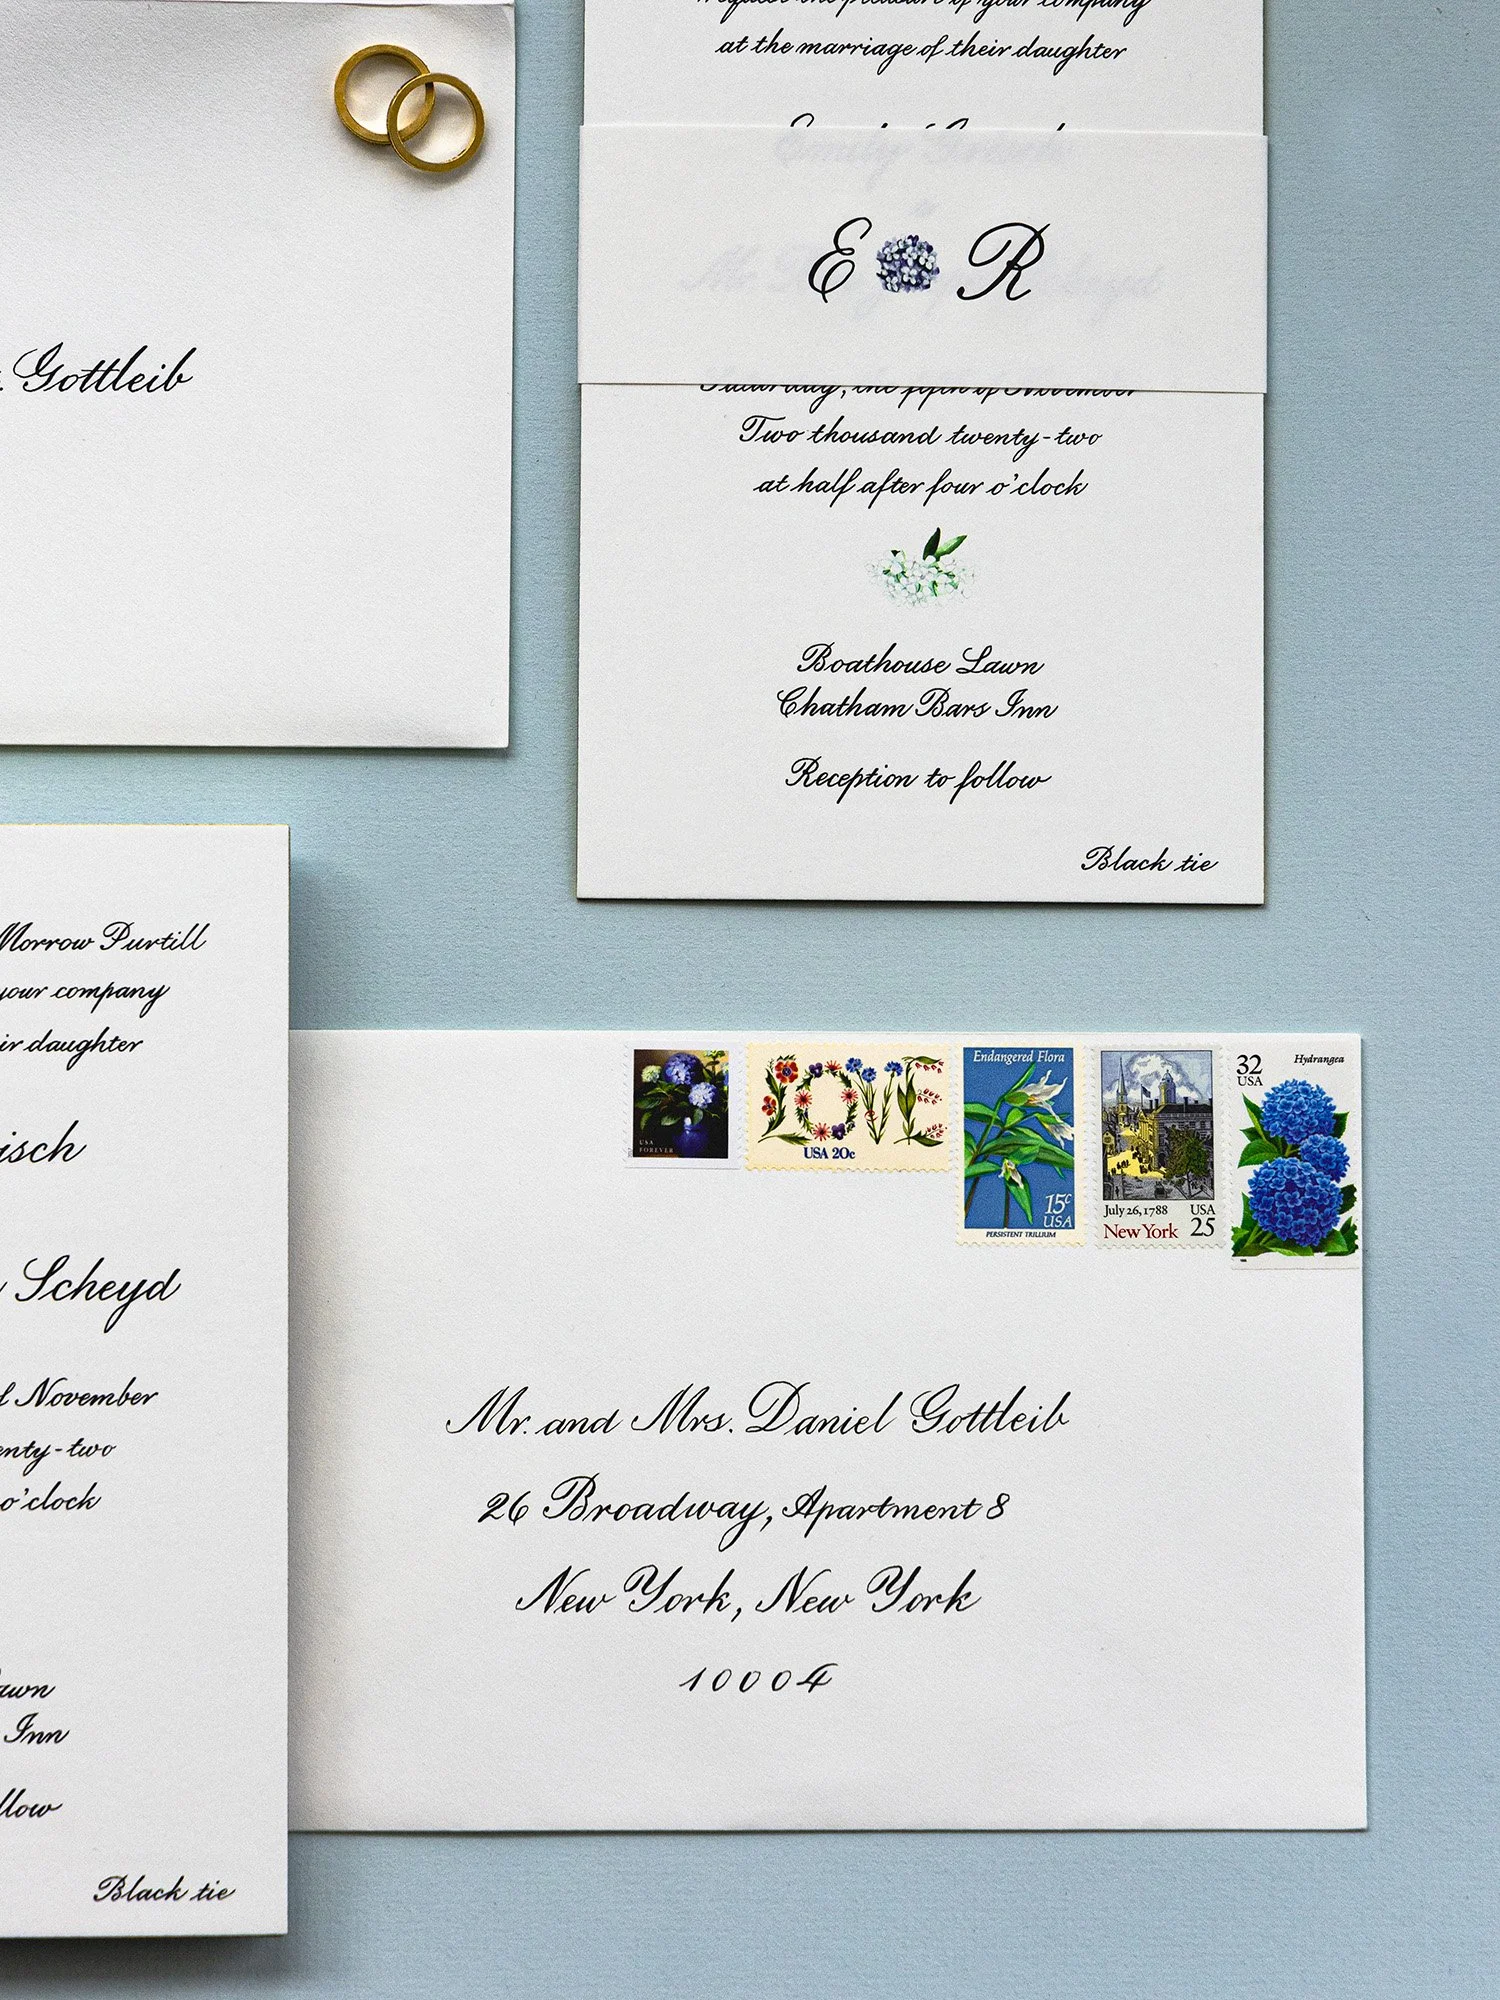 Gottleib
request the pleasure of your company
at the marriage of their daughter
E R
Saturday, the fifth of November
Two thousand twenty-two
at half after four o'clock
Boathouse Lawn
Chatham Bars Inn
Reception to follow
Black tie
Morrow Purtill
your company
ir daughter
isch
Scheyd
November
enty-two
o'clock
awn
Inn
llow
Black tie
USA
FOREVER
LOVE
USA 20c
Endangered Flora
15c
USA
PERSISTENT TRILLIUM
July 26, 1788 USA
New York 25
32 Hydrangea
USA
Mr. and Mrs. Daniel Gottleib
26 Broadway, Apartment 8
New York, New York
10004